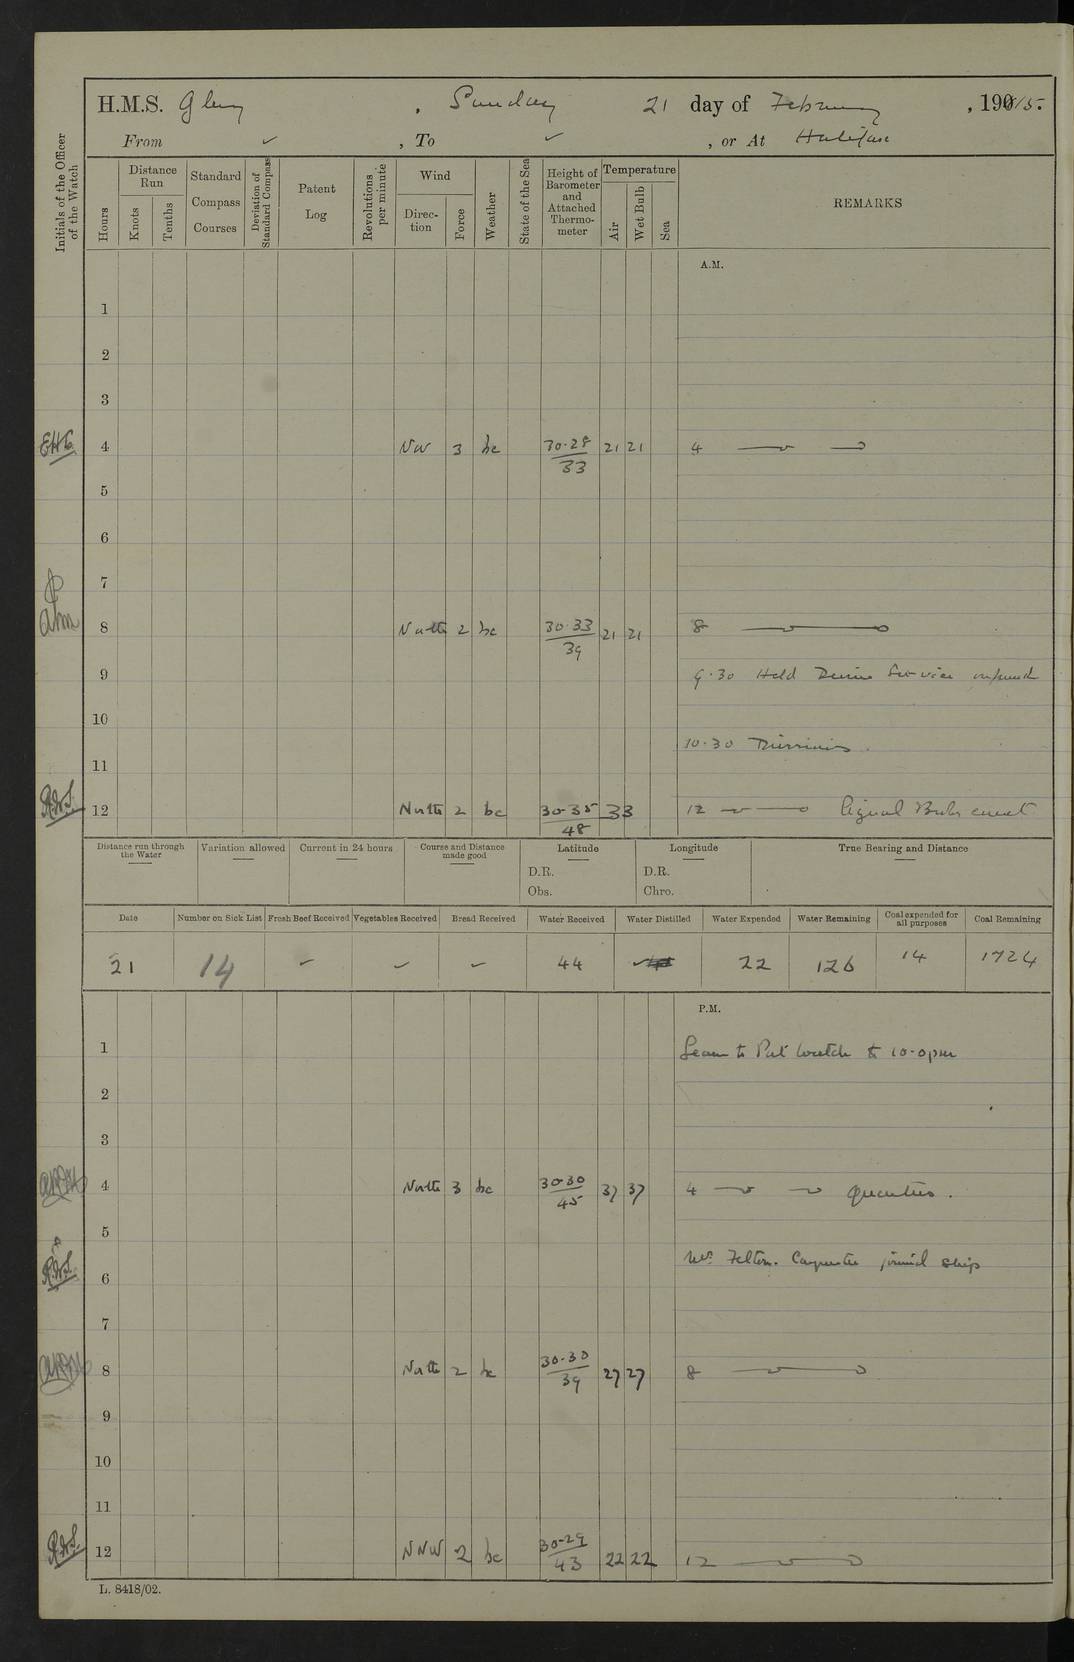 H.M.S. Glory, Sunday 21 day of February, 1915.
From ✓, To ✓, or At Halifax
Initials of the Officer of the Watch
Hours
Distance Run
Knots
Tenths
Standard Compass Courses
Deviation of Standard Compass
Patent Log
Revolutions per minute
Wind
Direction
Force
Weather
State of the Sea
Height of Barometer and Attached Thermometer
Temperature
Air
Wet Bulb
Sea
REMARKS
A.M.
1
2
3
4 NW 3 bc 30·28 / 33 21 21 4
5
6
7
8 North 2 bc 30·33 / 39 21 21 8
9 9·30 Held Divine Service
10 10·30
11
R.W.S. 12 North 2 bc 30·35 / 48 33 12 Signal Books correct
Distance run through the Water
Variation allowed
Current in 24 hours
Course and Distance made good
Latitude
D.R.
Obs.
Longitude
D.R.
Chro.
True Bearing and Distance
Date Number on Sick List Fresh Beef Received Vegetables Received Bread Received Water Received Water Distilled Water Expended Water Remaining Coal expended for all purposes Coal Remaining
21 14 ✓ ✓ ✓ 44 ✓ 22 126 14 1724
P.M.
1 Leave to Part Watch to 10·0pm
2
3
4 North 3 bc 30·30 / 45 37 37 4 Quarters.
5
R.W.S. 6 Mr. Felton. Carpenter joined ship
7
8 North 2 bc 30·30 / 39 27 27 8
9
10
11
R.W.S. 12 NNW 2 bc 30·29 / 43 22 22 12
L. 8418/02.